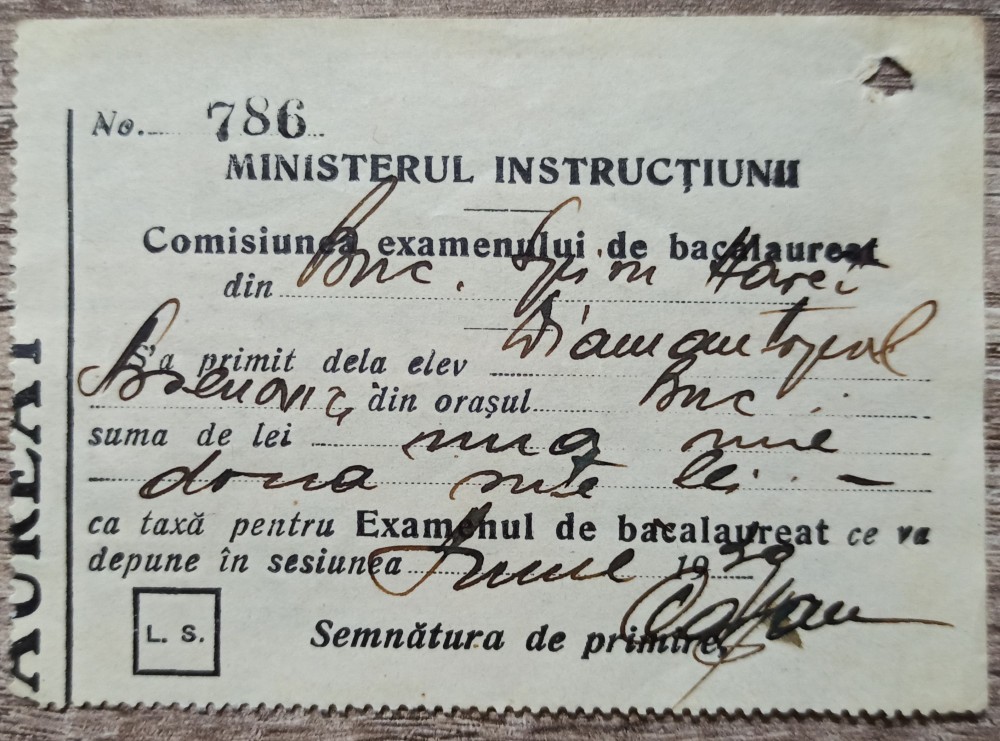 AUREAT
No. 786
MINISTERUL INSTRUCȚIUNII
Comisiunea examenului de bacalaureat
din Buc. Spiru Haret
S'a primit dela elev Diamantopol
din orașul Buc.
suma de lei una mie
doua sute lei. —
ca taxă pentru Examenul de bacalaureat ce va
depune în sesiunea Iunie 1930
L. S.
Semnătura de primire,